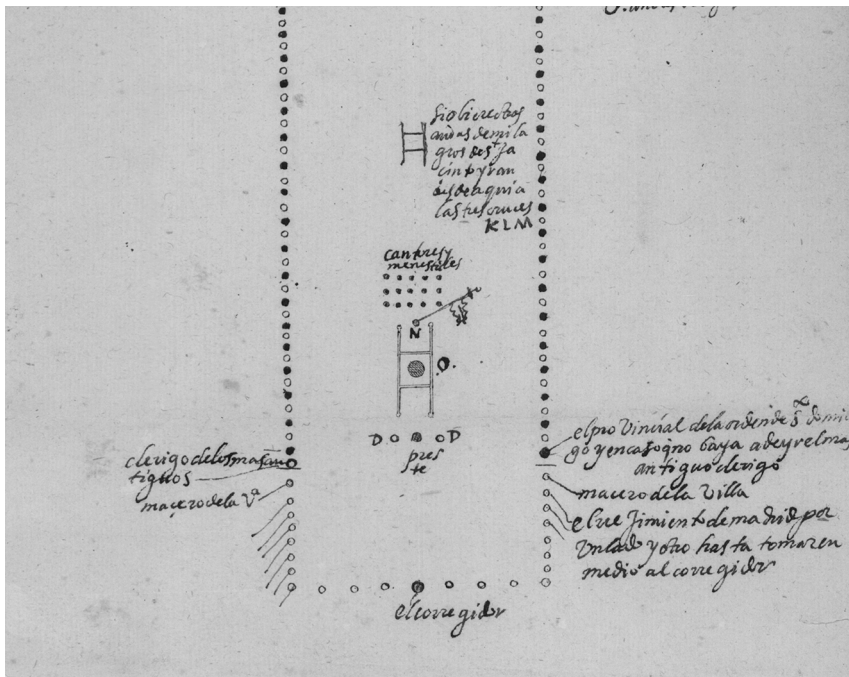 si obiere otras
andas de mila
gros de st Ja
cinto yran
desde aquia
las tres cruces
K L M
cantores y
menestriles
N
O.
D D
pres
te
clerigo de los mas an
tiguos
maçero de la Vª
el provincial de la orden de sto domin
go y en caso q no baya a de yr el mas
antiguo clerigo
macero de la villa
el rejimiento de madrid por
un lado y otro hasta tomar en
medio al corregidor
el corregidor